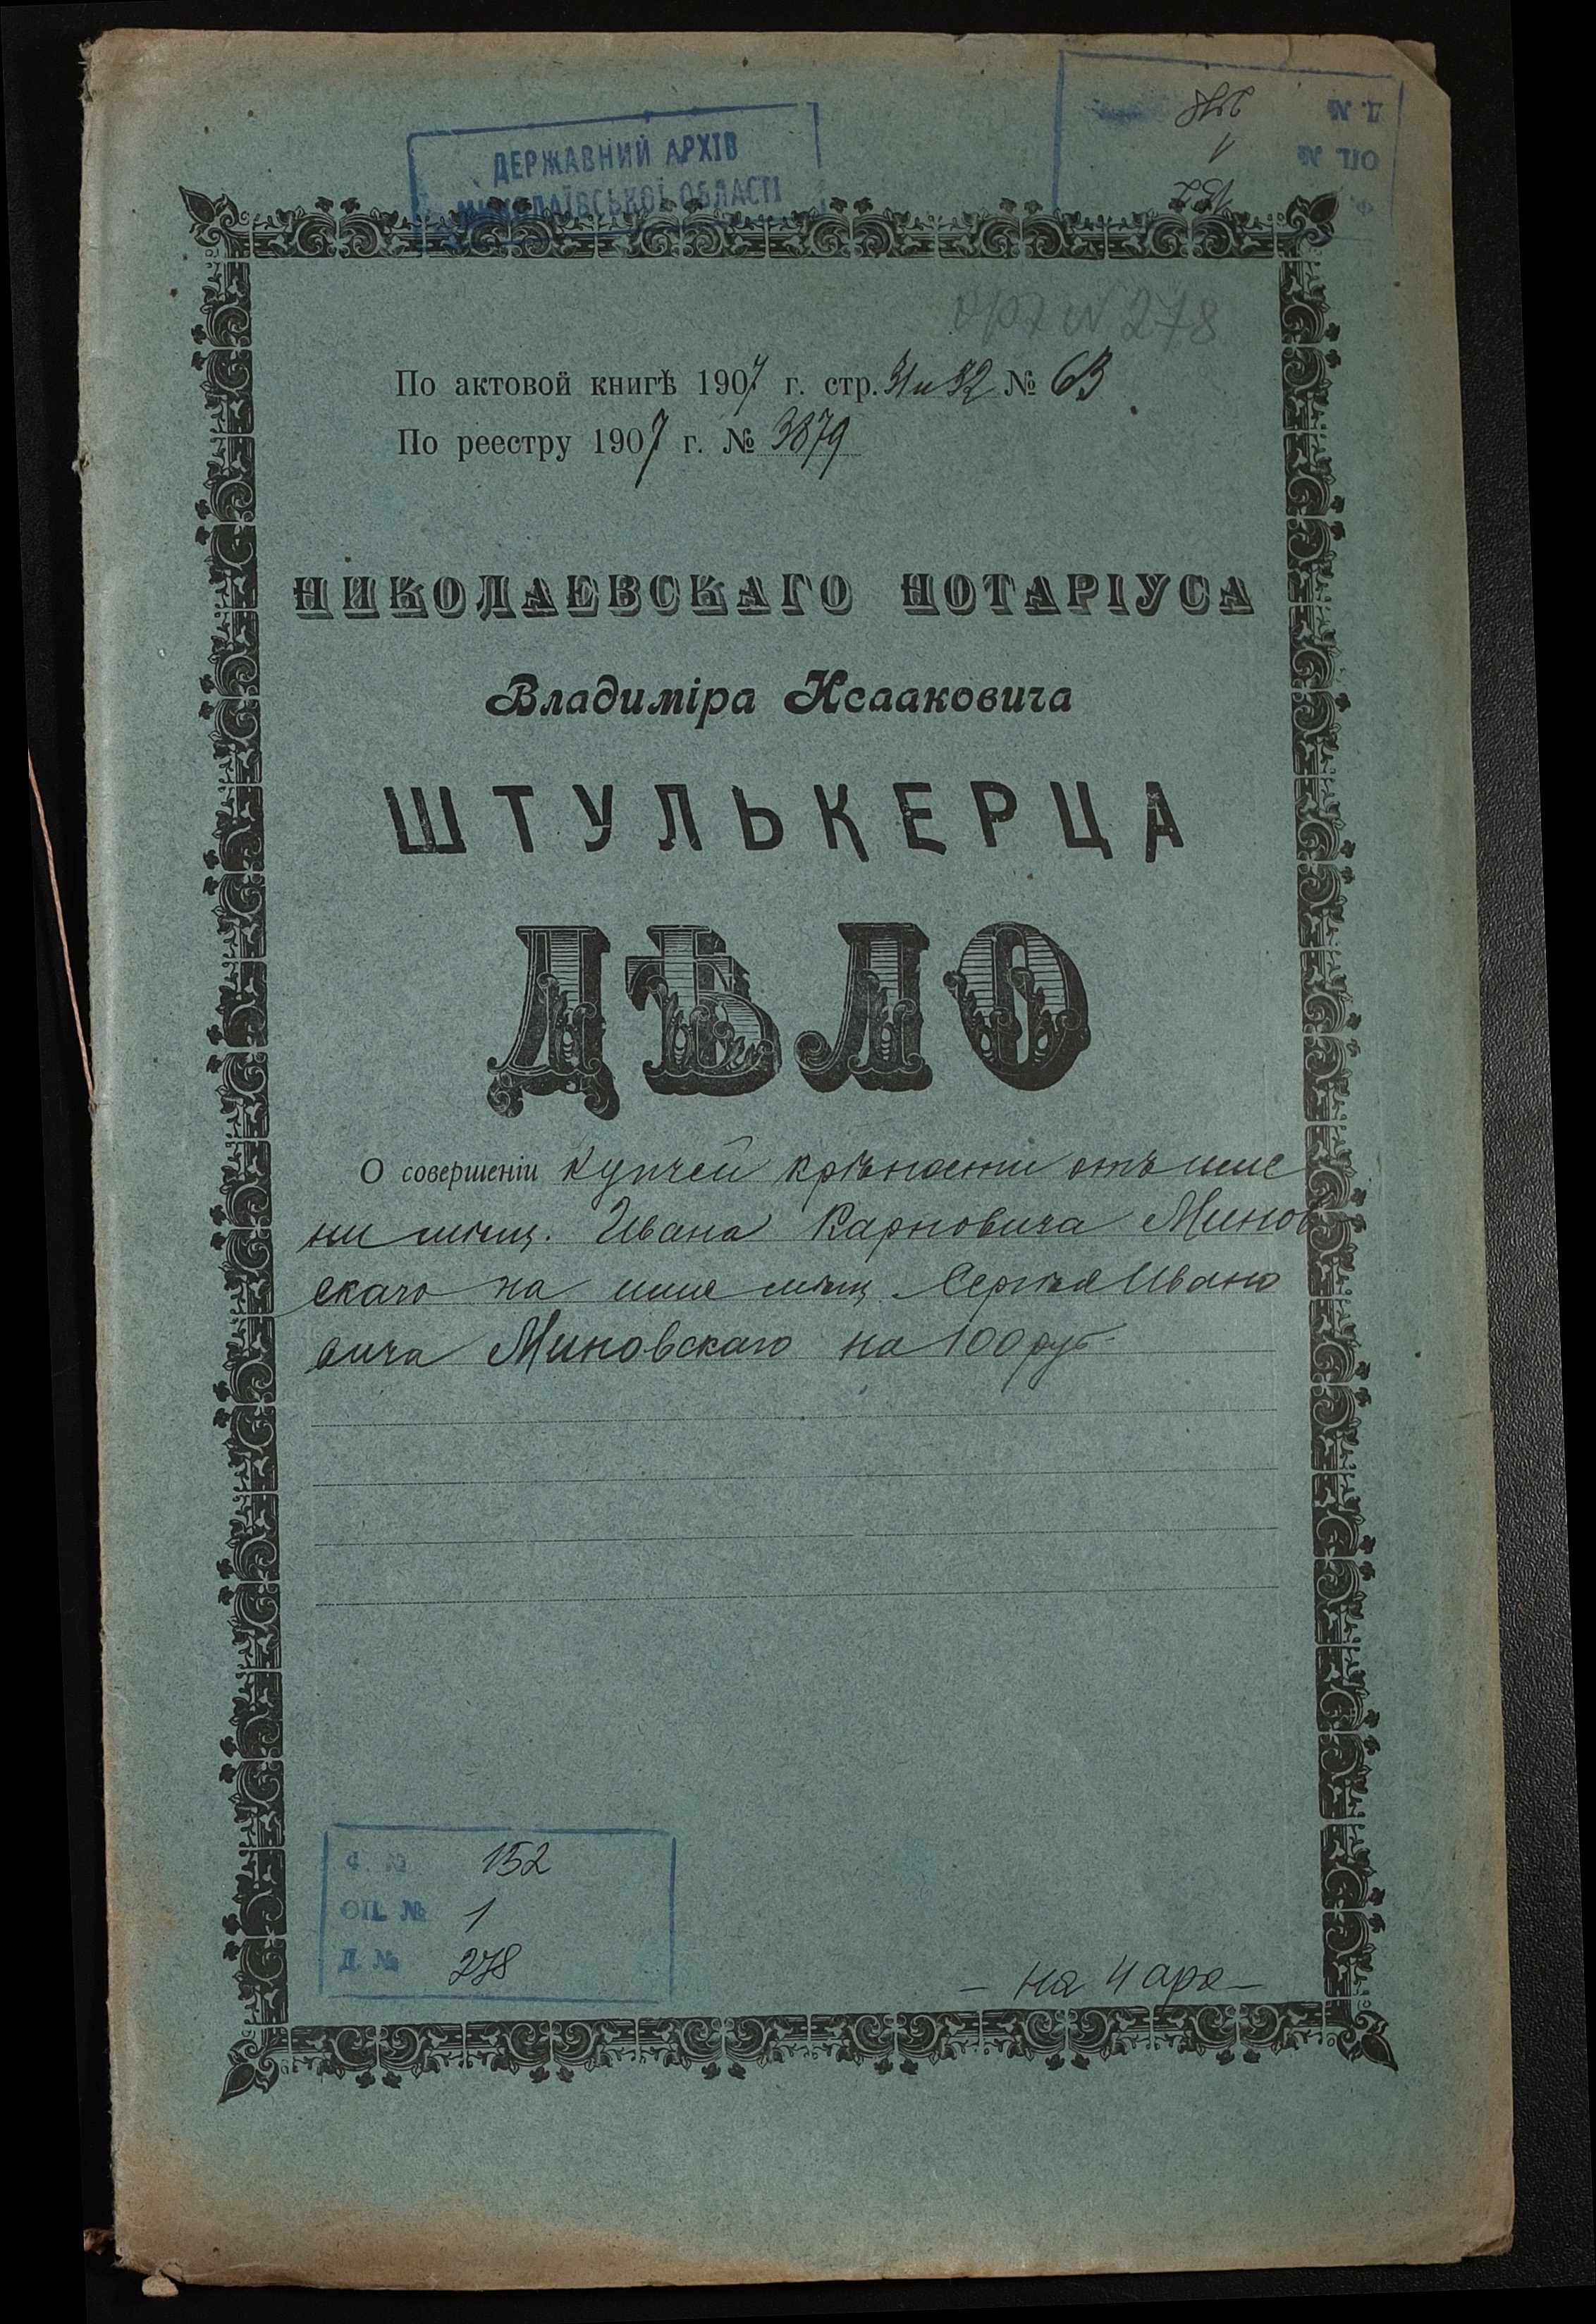 ДЕРЖАВНИЙ АРХІВ
МИКОЛАЇВСЬКОЇ ОБЛАСТІ
Д. № 278
ОП. № 1
Ф. 152
№ 278
По актовой книгѣ 1907 г. стр. 31 и 32 № 63
По реестру 1907 г. № 3879
НИКОЛАЕВСКАГО НОТАРІУСА
Владиміра Исааковича
ШТУЛЬКЕРЦА
ДѢЛО
О совершеніи купчей крѣпости отъ име
ни мѣщ. Ивана Карповича Минов
скаго на имя мѣщ Сергѣя Ивано
вича Миновскаго на 100 руб
Ф. № 152
ОП. № 1
Д. № 278
- на 4 арк -